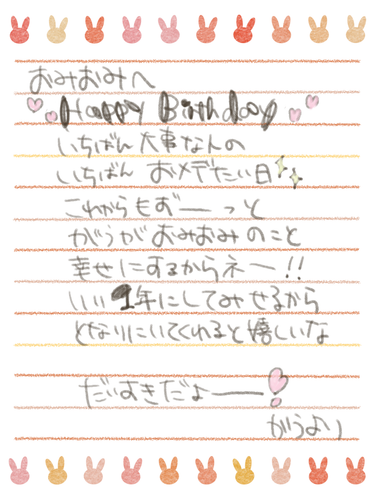 おみおみへ
Happy Birthday
いちばん大事な人の
いちばん おメデたい日
これからもずーーっと
がうがおみおみのこと
幸せにするからネー!!
いい1年にしてみせるから
となりにいてくれると嬉しいな
だいすきだよーー!
がうより